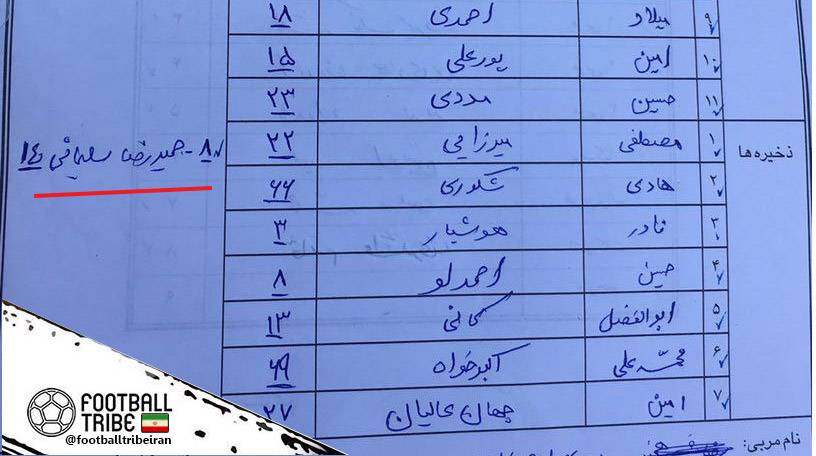 ۹ میلاد احمدی ۱۸
۱۰ امین پورعلی ۱۵
۱۱ حسین مددی ۲۳
ذخیره ها
۱ مصطفی میرزایی ۲۲
۲ هادی شکوری ۶۶
۳ نادر هوشیار ۳
۴ حسین احمدلو ۸
۵ ابوالفضل کانی ۱۳
۶ محمدعلی اکبرخواه ۶۹
۷ امین جهان عالیان ۲۷
۸ - حمیدرضا سلیمانی ۱۴
نام مربی:
FOOTBALL
TRIBE
@footballtribeiran